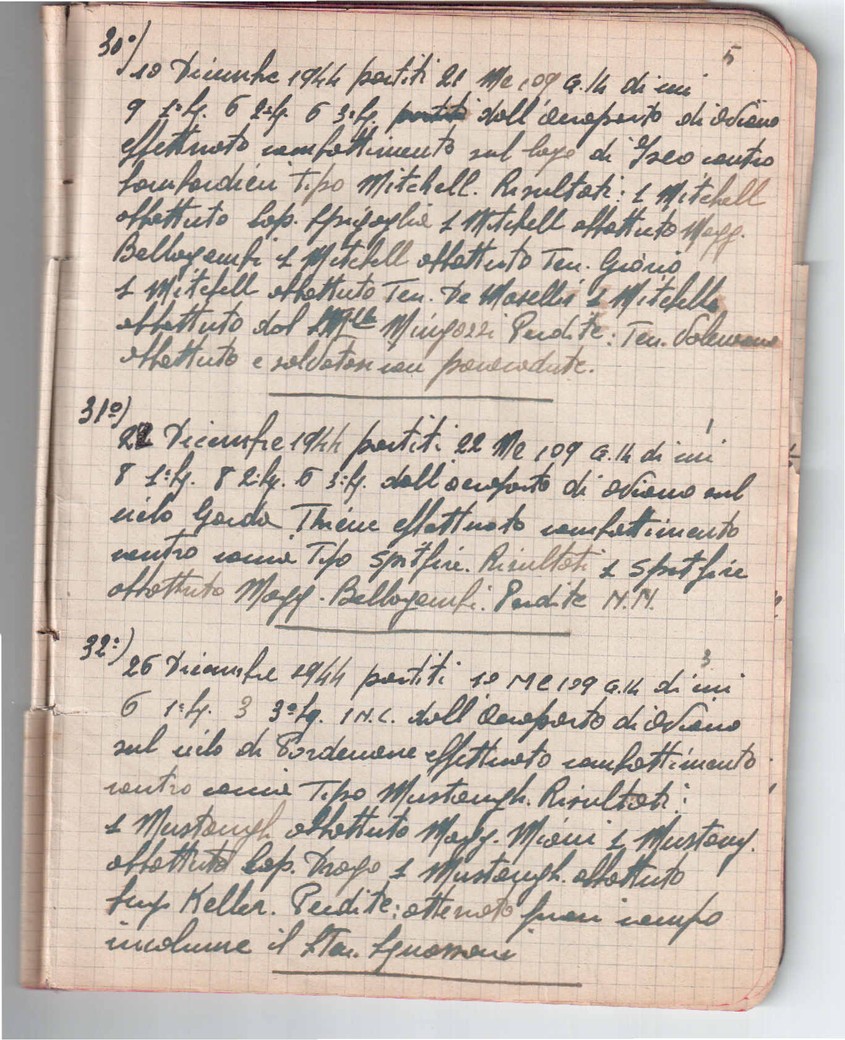 5
30º)
10 Dicembre 1944 partiti 21 Me 109 G.14 di cui
9 1ª Sq. 6 2ª Sq. 6 3ª Sq. dall'aeroporto di Aviano
effettuato combattimento sul lago di Iseo contro
bombardieri Tipo Mitchell. Risultati: 1 Mitchell
abbattuto Cap. Spigaglia 1 Mitchell abbattuto Magg.
Bellagambi 1 Mitchell abbattuto Ten. Giorio
1 Mitchell abbattuto Ten. De Masellis 1 Mitchell
abbattuto dal Mingozzi Perdite: Ten.
abbattuto e salvatosi con paracadute.
31º)
22 Dicembre 1944 partiti 22 Me 109 G.14 di cui
8 1ª Sq. 8 2ª Sq. 6 3ª Sq. dall'aeroporto di Aviano sul
cielo Garda Thiene effettuato combattimento
contro caccia Tipo Spitfire. Risultati 1 Spitfire
abbattuto Magg. Bellagambi. Perdite N.N.
32º)
26 Dicembre 1944 partiti 10 Me 109 G.14 di cui
6 1ª Sq. 3 3ª Sq. 1 N.C. dall'Aeroporto di Aviano
sul cielo di Pordenone effettuato combattimento
contro caccia Tipo Mustangh. Risultati:
1 Mustangh abbattuto Magg. Miani 1 Mustang.
abbattuto Cap. Drago 1 Mustangh. abbattuto
Keller. Perdite: atterrato fuori campo
incolume il STen.